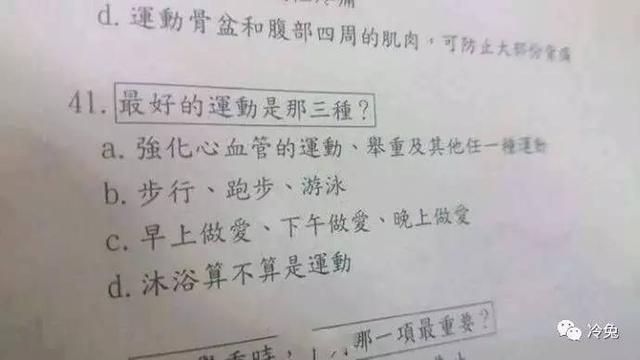 d. 運動骨盆和腹部四周的肌肉，可防止大部份背痛
41. 最好的運動是那三種？
a. 強化心血管的運動、舉重及其他任一種運動
b. 步行、跑步、游泳
c. 早上做愛、下午做愛、晚上做愛
d. 沐浴算不算是運動
那一項最重要？
冷兔